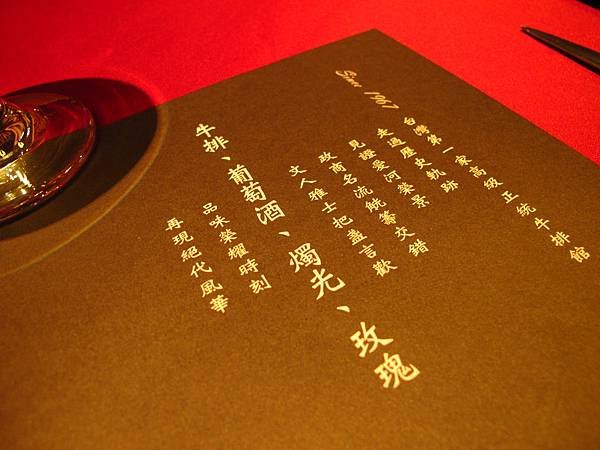 Since 1967
台灣第一家高級正統牛排館
走過歷史軌跡
見證愛河榮景
政商名流觥籌交錯
文人雅士把盞言歡
牛排、葡萄酒、燭光、玫瑰
品味榮耀時刻
再現絕代風華